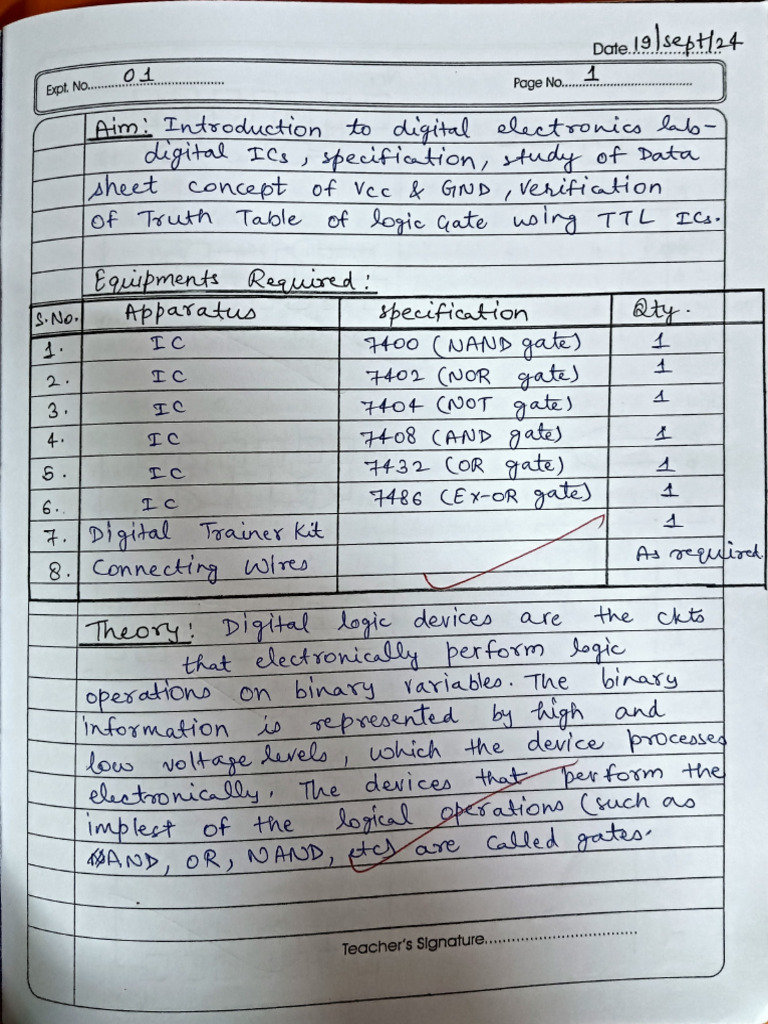 Date. 19/sept/24
Expt. No. 01 Page No. 1
Aim: Introduction to digital electronics lab-
digital ICs, specification, study of Data
sheet concept of Vcc & GND, verification
of Truth Table of logic Gate using TTL ICs.
Equipments Required:
S.No. Apparatus specification Qty.
1. IC 7400 (NAND gate) 1
2. IC 7402 (NOR gate) 1
3. IC 7404 (NOT gate) 1
4. IC 7408 (AND gate) 1
5. IC 7432 (OR gate) 1
6. IC 7486 (Ex-OR gate) 1
7. Digital Trainer Kit 1
8. Connecting Wires As required
Theory: Digital logic devices are the ckts
that electronically perform logic
operations on binary variables. The binary
information is represented by high and
low voltage levels, which the device processes
electronically. The devices that perform the
implest of the logical operations (such as
AND, OR, NAND, etc) are called gates.
Teacher's Signature